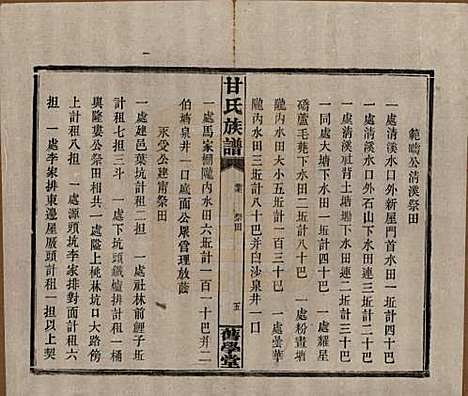 範疇公清溪祭田
一處清溪水口外新屋門首水田一坵計四十巴
一處清溪水口外石山下水田連二坵計三十巴
一處清溪社背土塘下水田連三坵計
一同處大塘下水田一坵計四十巴 一處羅星
磻蘆毛蕘下水田二坵計八十巴 一處粉畫塘
隴內水田大小五坵計一百三十巴 一處曇華
隴內水田三坵計八十巴并白沙泉井一口
甘氏族譜
祭田
五
舊學堂
一處馬家棚隴內水田六坵計一百一十巴并二
伯塘泉井一口廠面公衆管理放蔭
永受公建甯祭田
一處建邑葉坑計租二担 一處社林前鯉子坵
計租七担三斗 一處下坑頭鐵爐排計租一桶
與隆婁公祭田相共 一處隘上桃林坑口大路傍
上計租八担 一處源頭坑李家排對面計租一
担 一處李家排東邊屋厫頭計租一担以上契